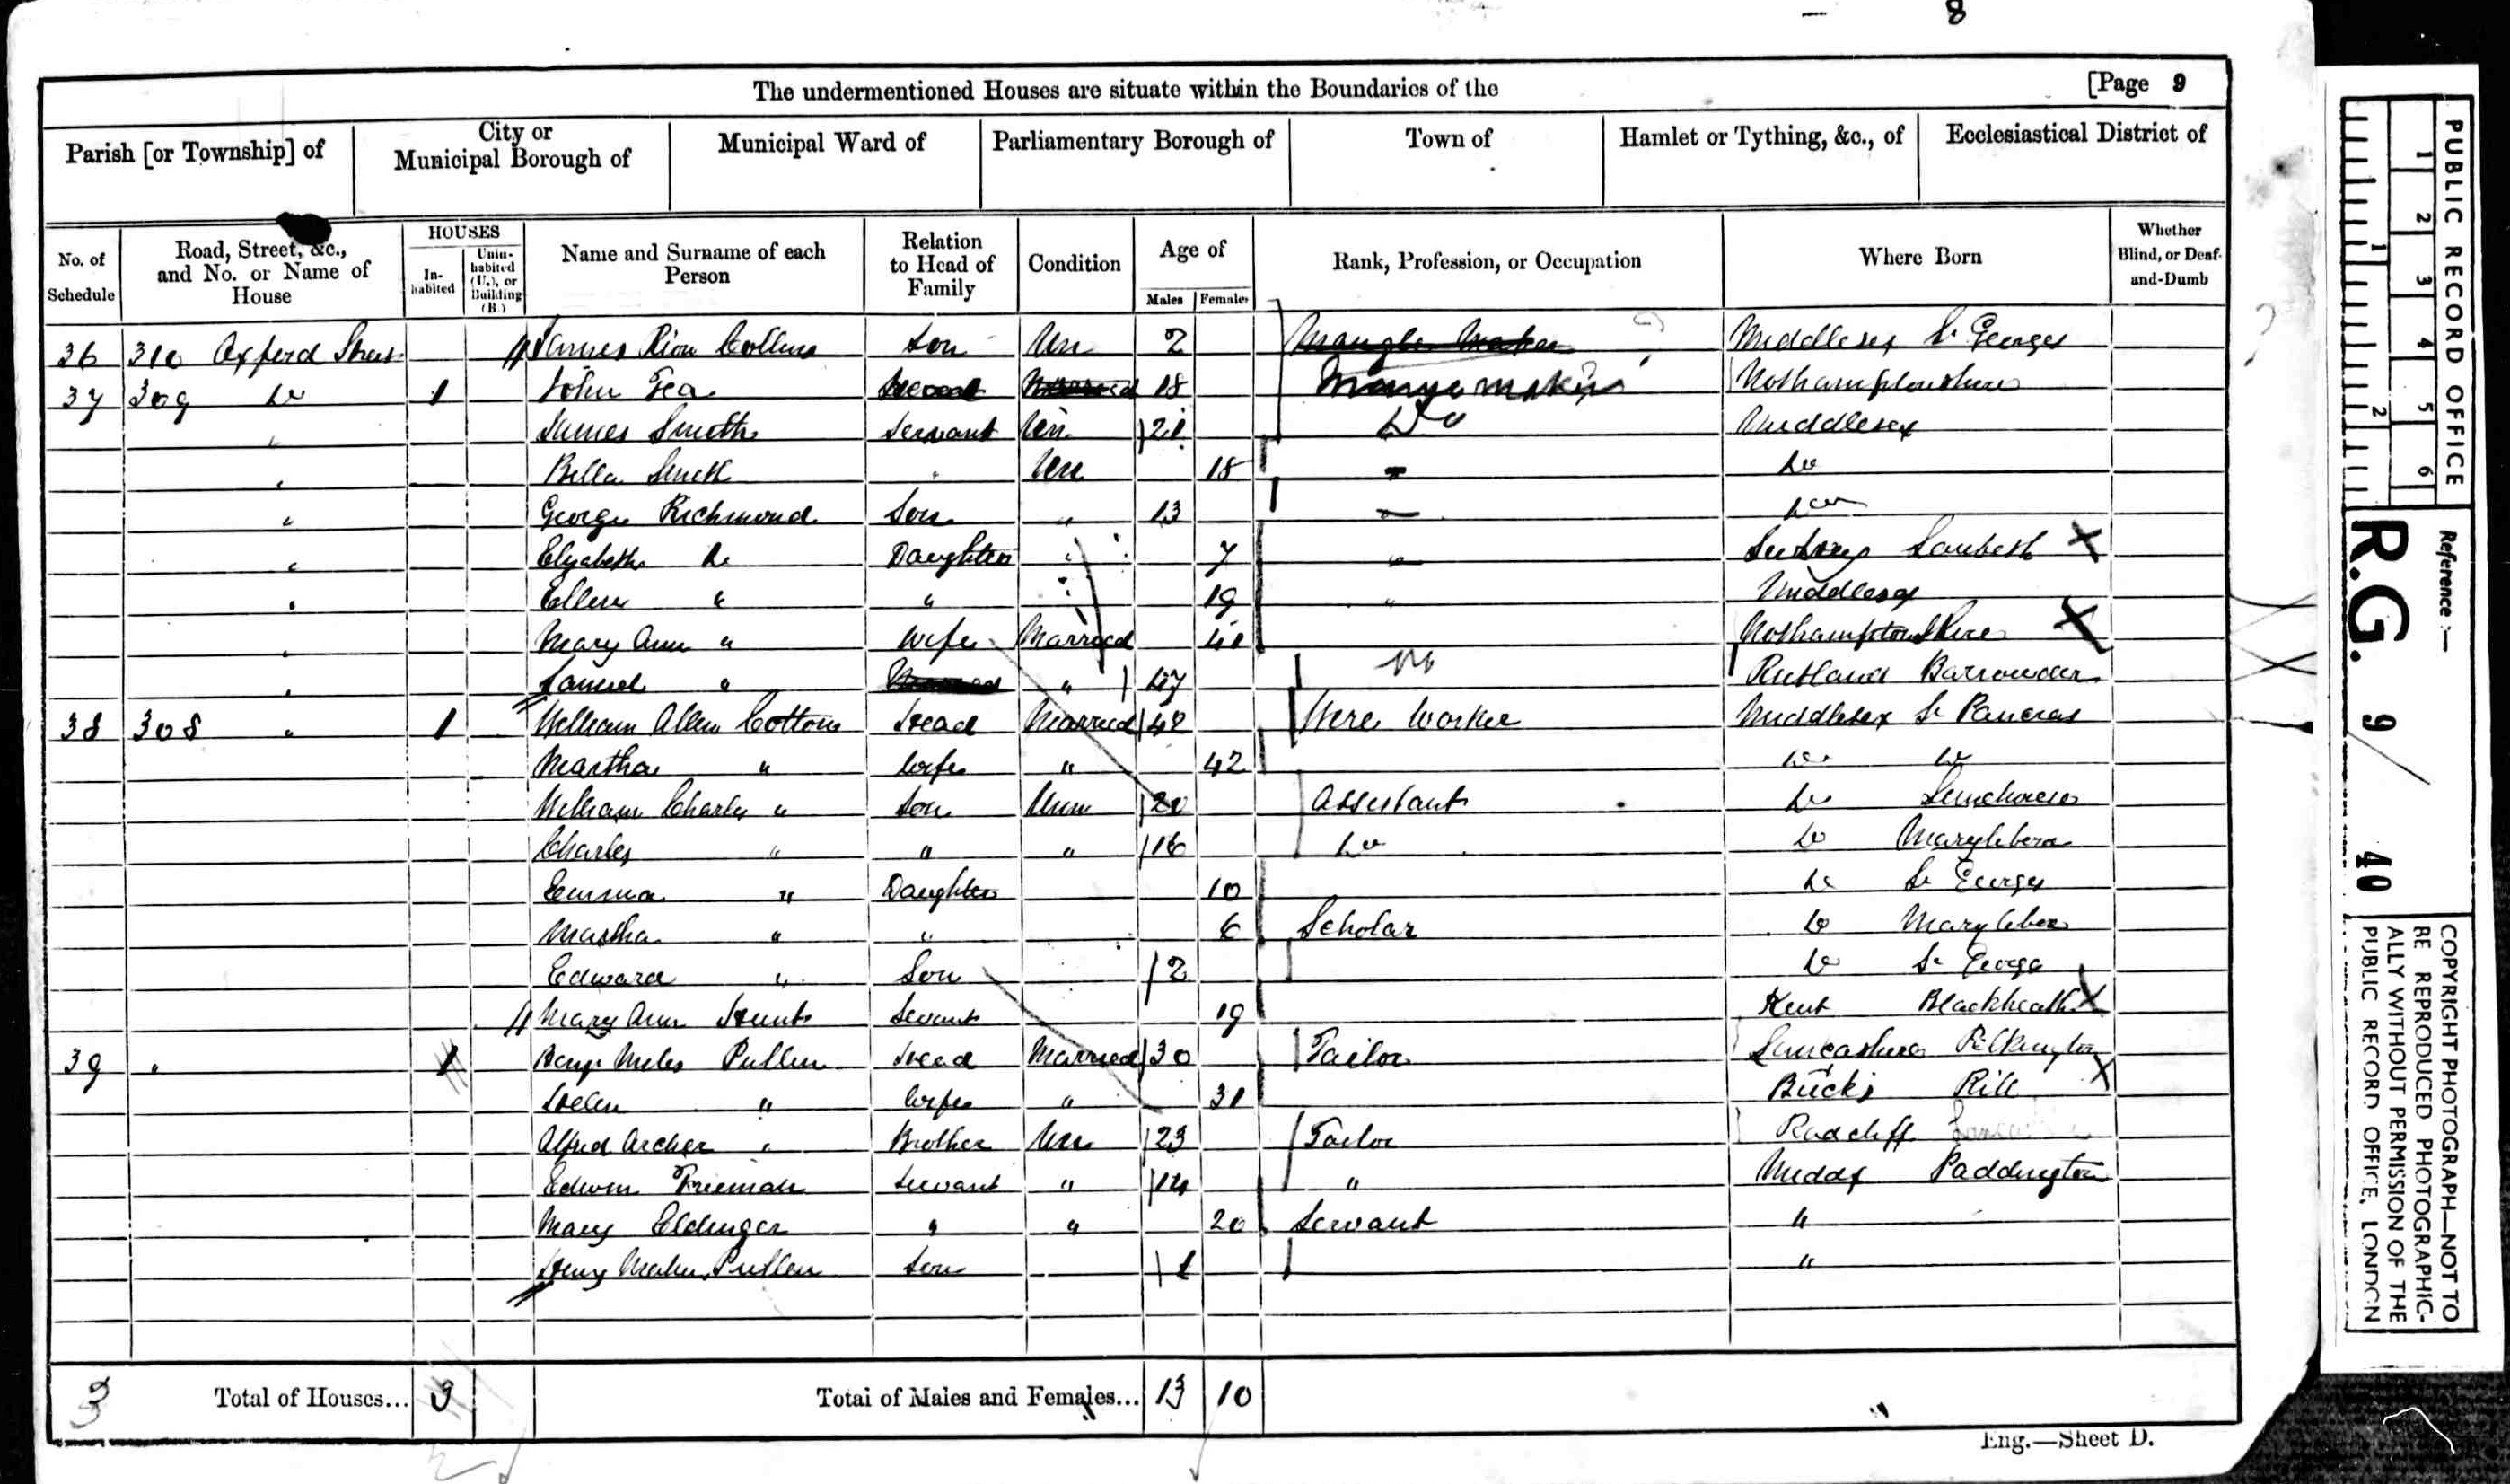 8
The undermentioned Houses are situate within the Boundaries of the [Page 9
Parish [or Township] of City or Municipal Borough of Municipal Ward of Parliamentary Borough of Town of Hamlet or Tything, &c., of Ecclesiastical District of
No. of Schedule Road, Street, &c., and No. or Name of House HOUSES In-habited Unin-habited (U.), or Building (B.) Name and Surname of each Person Relation to Head of Family Condition Age of Males Females Rank, Profession, or Occupation Where Born Whether Blind, or Deaf-and-Dumb
36 310 Oxford Street James Collins Son Un 2 Mangle Maker Middlesex St Georges
37 309 Do 1 John Gea Head Married 18 Mangle maker Nothamptonshire
" James Smith Servant Un 21 Do Middlesex
" Bella Smith " Un 18 Do
" George Richmond Son " 13 Do
" Elizabeth Do Daughter " 7 Surrey Lambeth
" Ellen " " 19 " Middlesex
" Mary Ann " Wife Married 41 Nothamptonshire
" Samuel " " 47 Rutland Barrowden
38 308 " 1 William Allen Cottom Head Married 42 Wire Worker Middlesex St Pancras
Martha " Wife " 42 Do Do
William Charles " Son Unm 20 Assistant Do Limehouse
Charles " " " 16 Do Do Marylebone
Emma " Daughter 10 Do St Georges
Martha " " 6 Scholar Do Marylebone
Edward " Son 2 Do St George
Mary Ann Hunt Servant 19 Kent Blackheath
39 " 1 Benj. Miles Pullen Head Married 30 Tailor Lancashire Pilkington
Helen " Wife " 31 Bucks
Alfred Archer " Brother Un 23 Tailor Radcliff
Edwin Freeman Servant " 14 " Middx Paddington
Mary " " 20 Servant "
Henry Pullen Son 1 "
3 Total of Houses... 3 Total of Males and Females... 13 10
Eng.—Sheet D.
PUBLIC RECORD OFFICE
1 2 3 4 5 6
1 2
Reference :—
R.G. 9/40
COPYRIGHT PHOTOGRAPH—NOT TO BE REPRODUCED PHOTOGRAPHIC-ALLY WITHOUT PERMISSION OF THE PUBLIC RECORD OFFICE, LONDON